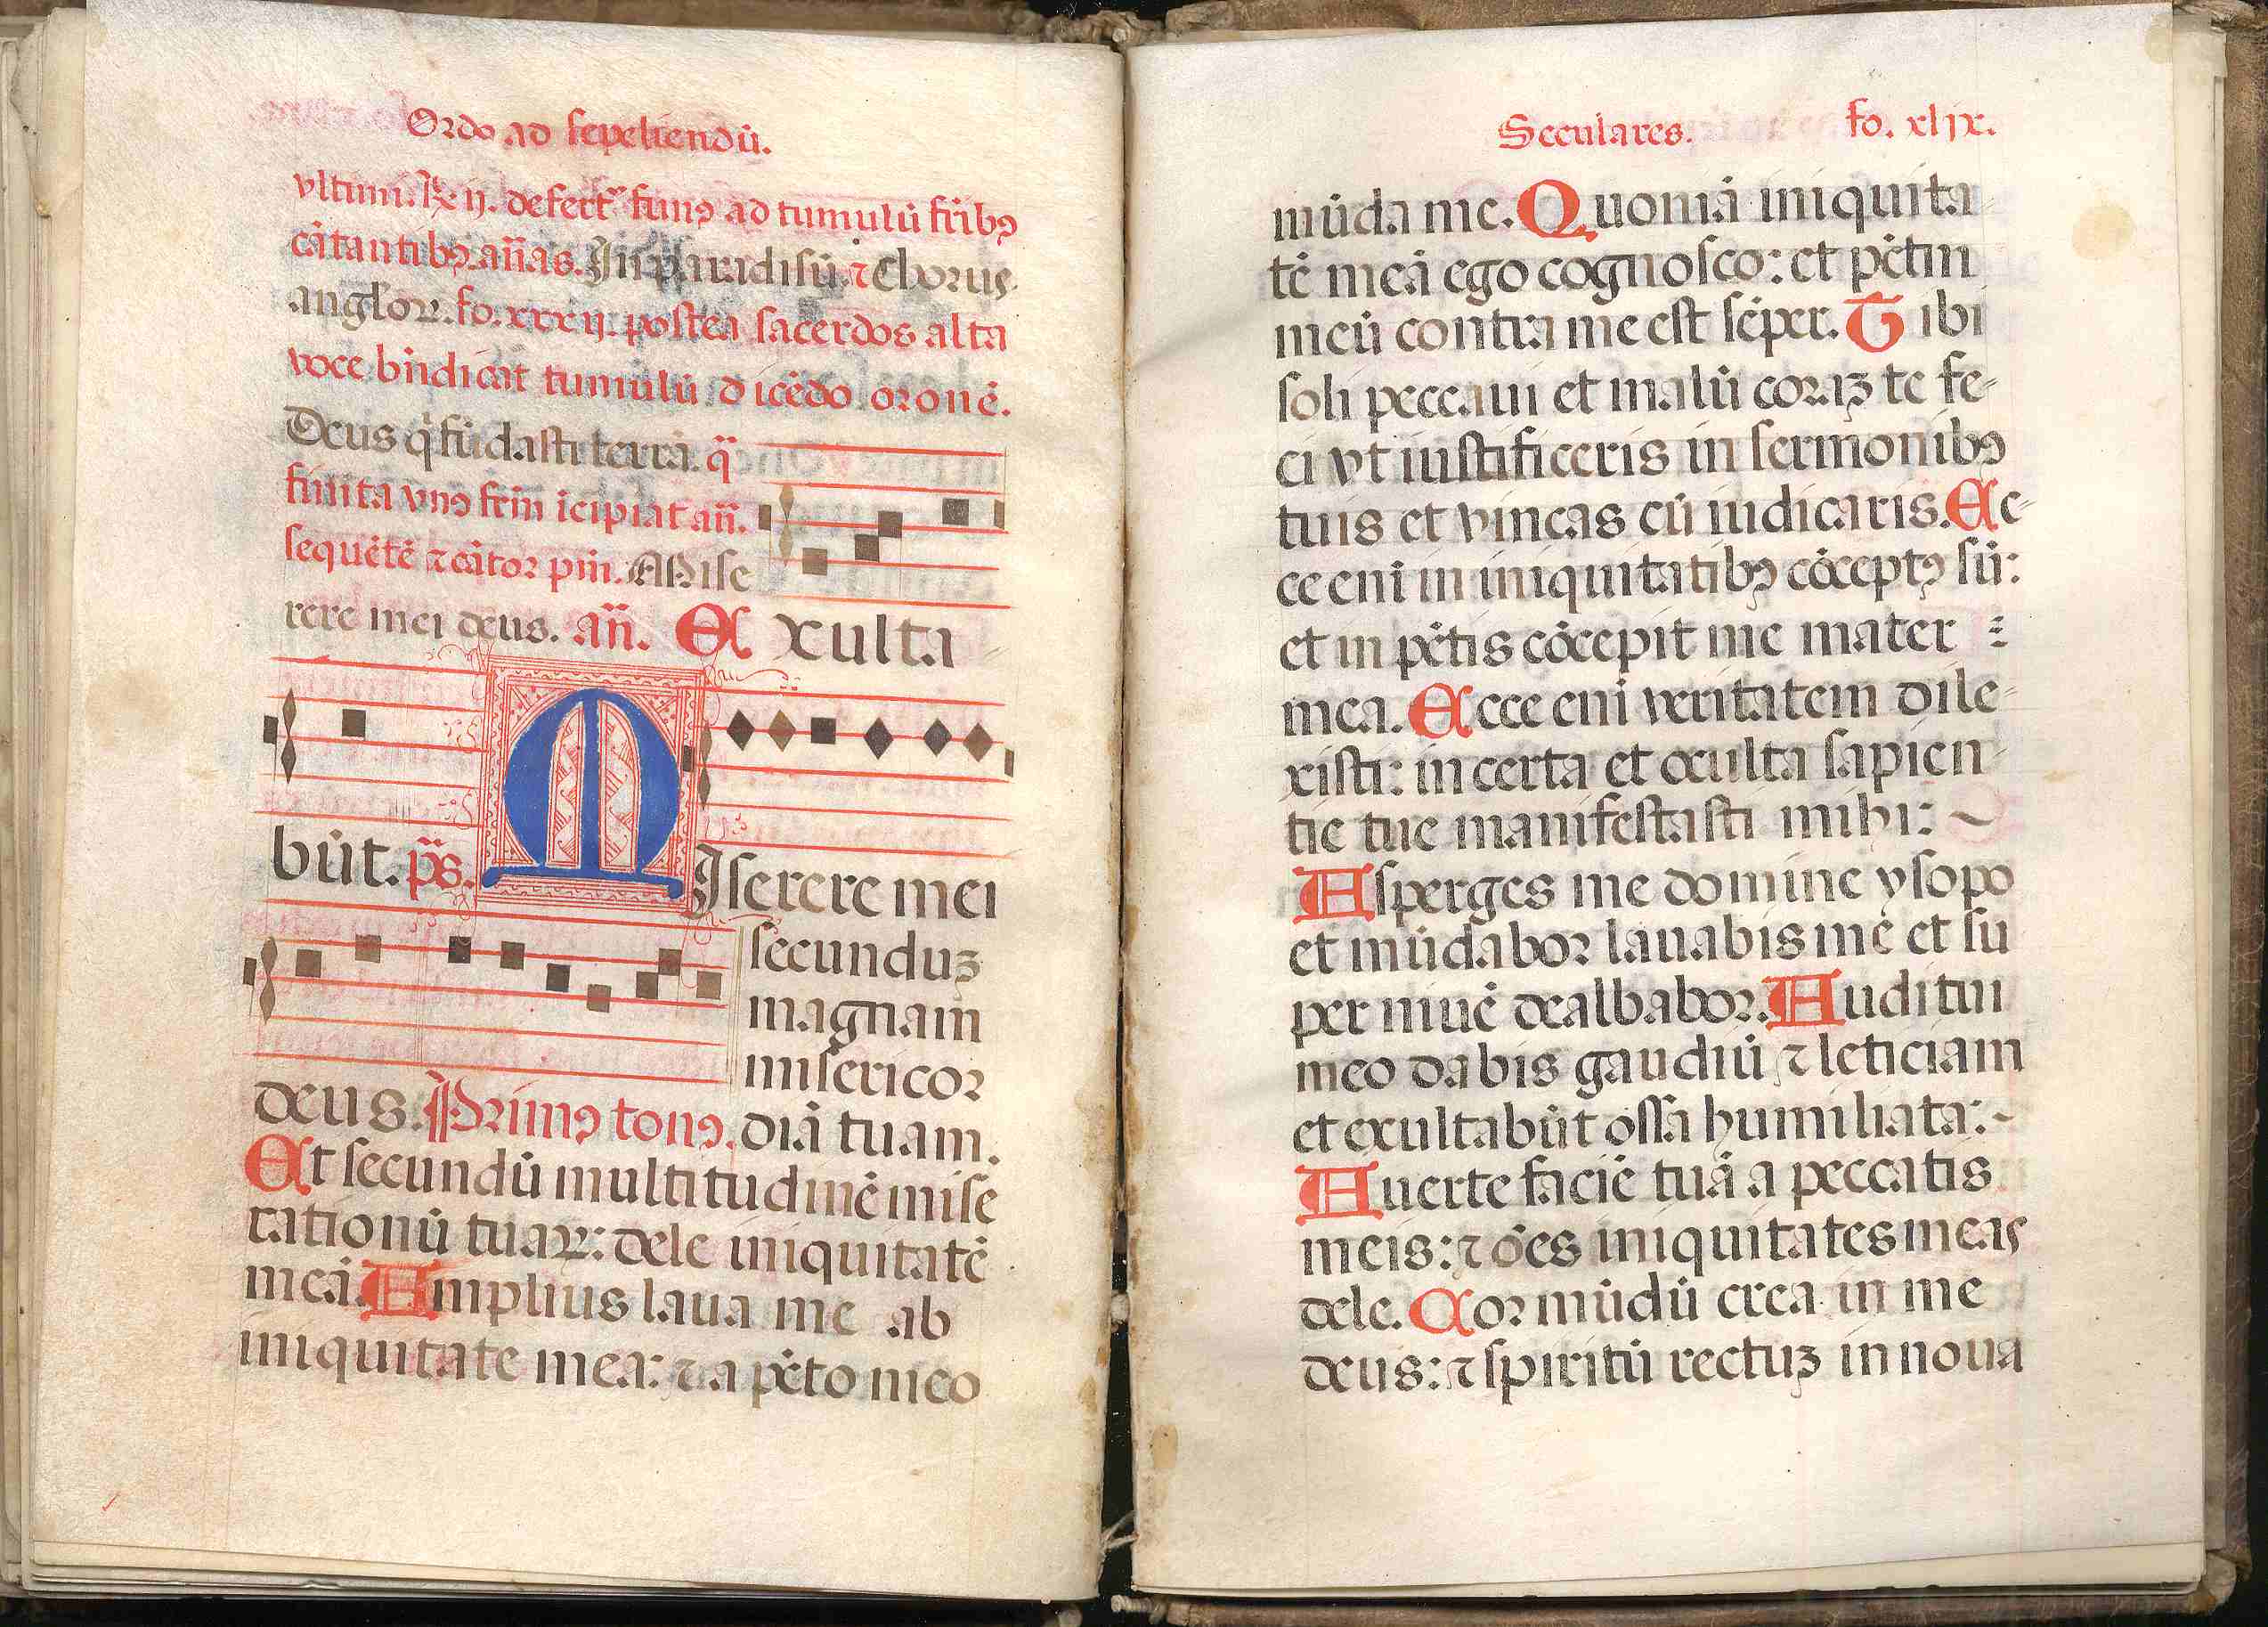 Ordo ad sepeliendū.
vltimi. R⁊ ij. defert᷑ funꝯ ad tumulū fr̄ibꝯ
cātantibꝯ an̄as. In paradisū. ⁊ Chorus
angloꝝ. fo. xxxij. postea sacerdos alta
voce bn̄dicat tumulū dicēdo oronē.
Deus q̄ fūdasti terrā. q̄
finita vnꝯ frm̄ īcipiat an̄.
sequētē ⁊ cātor pm̄. Mise
rere mei deus. an̄. Exulta
būt. p̄s. MIserere mei
secunduꝫ
magnam
misericor
deus. Primꝯ tonꝯ. diā tuam.
Et secundū multitudinē mise
rationū tuaꝝ: dele iniquitatē
meā. Amplius laua me ab
iniquitate mea: ⁊ a pēto meo
Seculares. fo. xlix.
mūda me. Quoniā iniquita
tē meā ego cognosco: et pētm
meū contra me est sēper. Tibi
soli peccaui et malū coraꝫ te fe-
ci vt iustificeris in sermonibꝯ
tuis et vincas cū iudicaris. Ec-
ce enī in iniquitatibꝯ cōceptꝯ sū:
et in pētis cōcepit me mater
mea. Ecce enī veritatem dile-
xisti: incerta et oculta sapien-
tie tue manifestasti mihi:
Asperges me domine ysopo
et mūdabor lauabis mē et su
per niuē dealbabor. Auditui
meo dabis gaudiū ⁊ leticiam
et exultabūt ossa humiliata:
Auerte faciē tuā a peccatis
meis: ⁊ ōes iniquitates meas
dele. Cor mūdū crea in me
deus: ⁊ spiritū rectuꝫ in noua